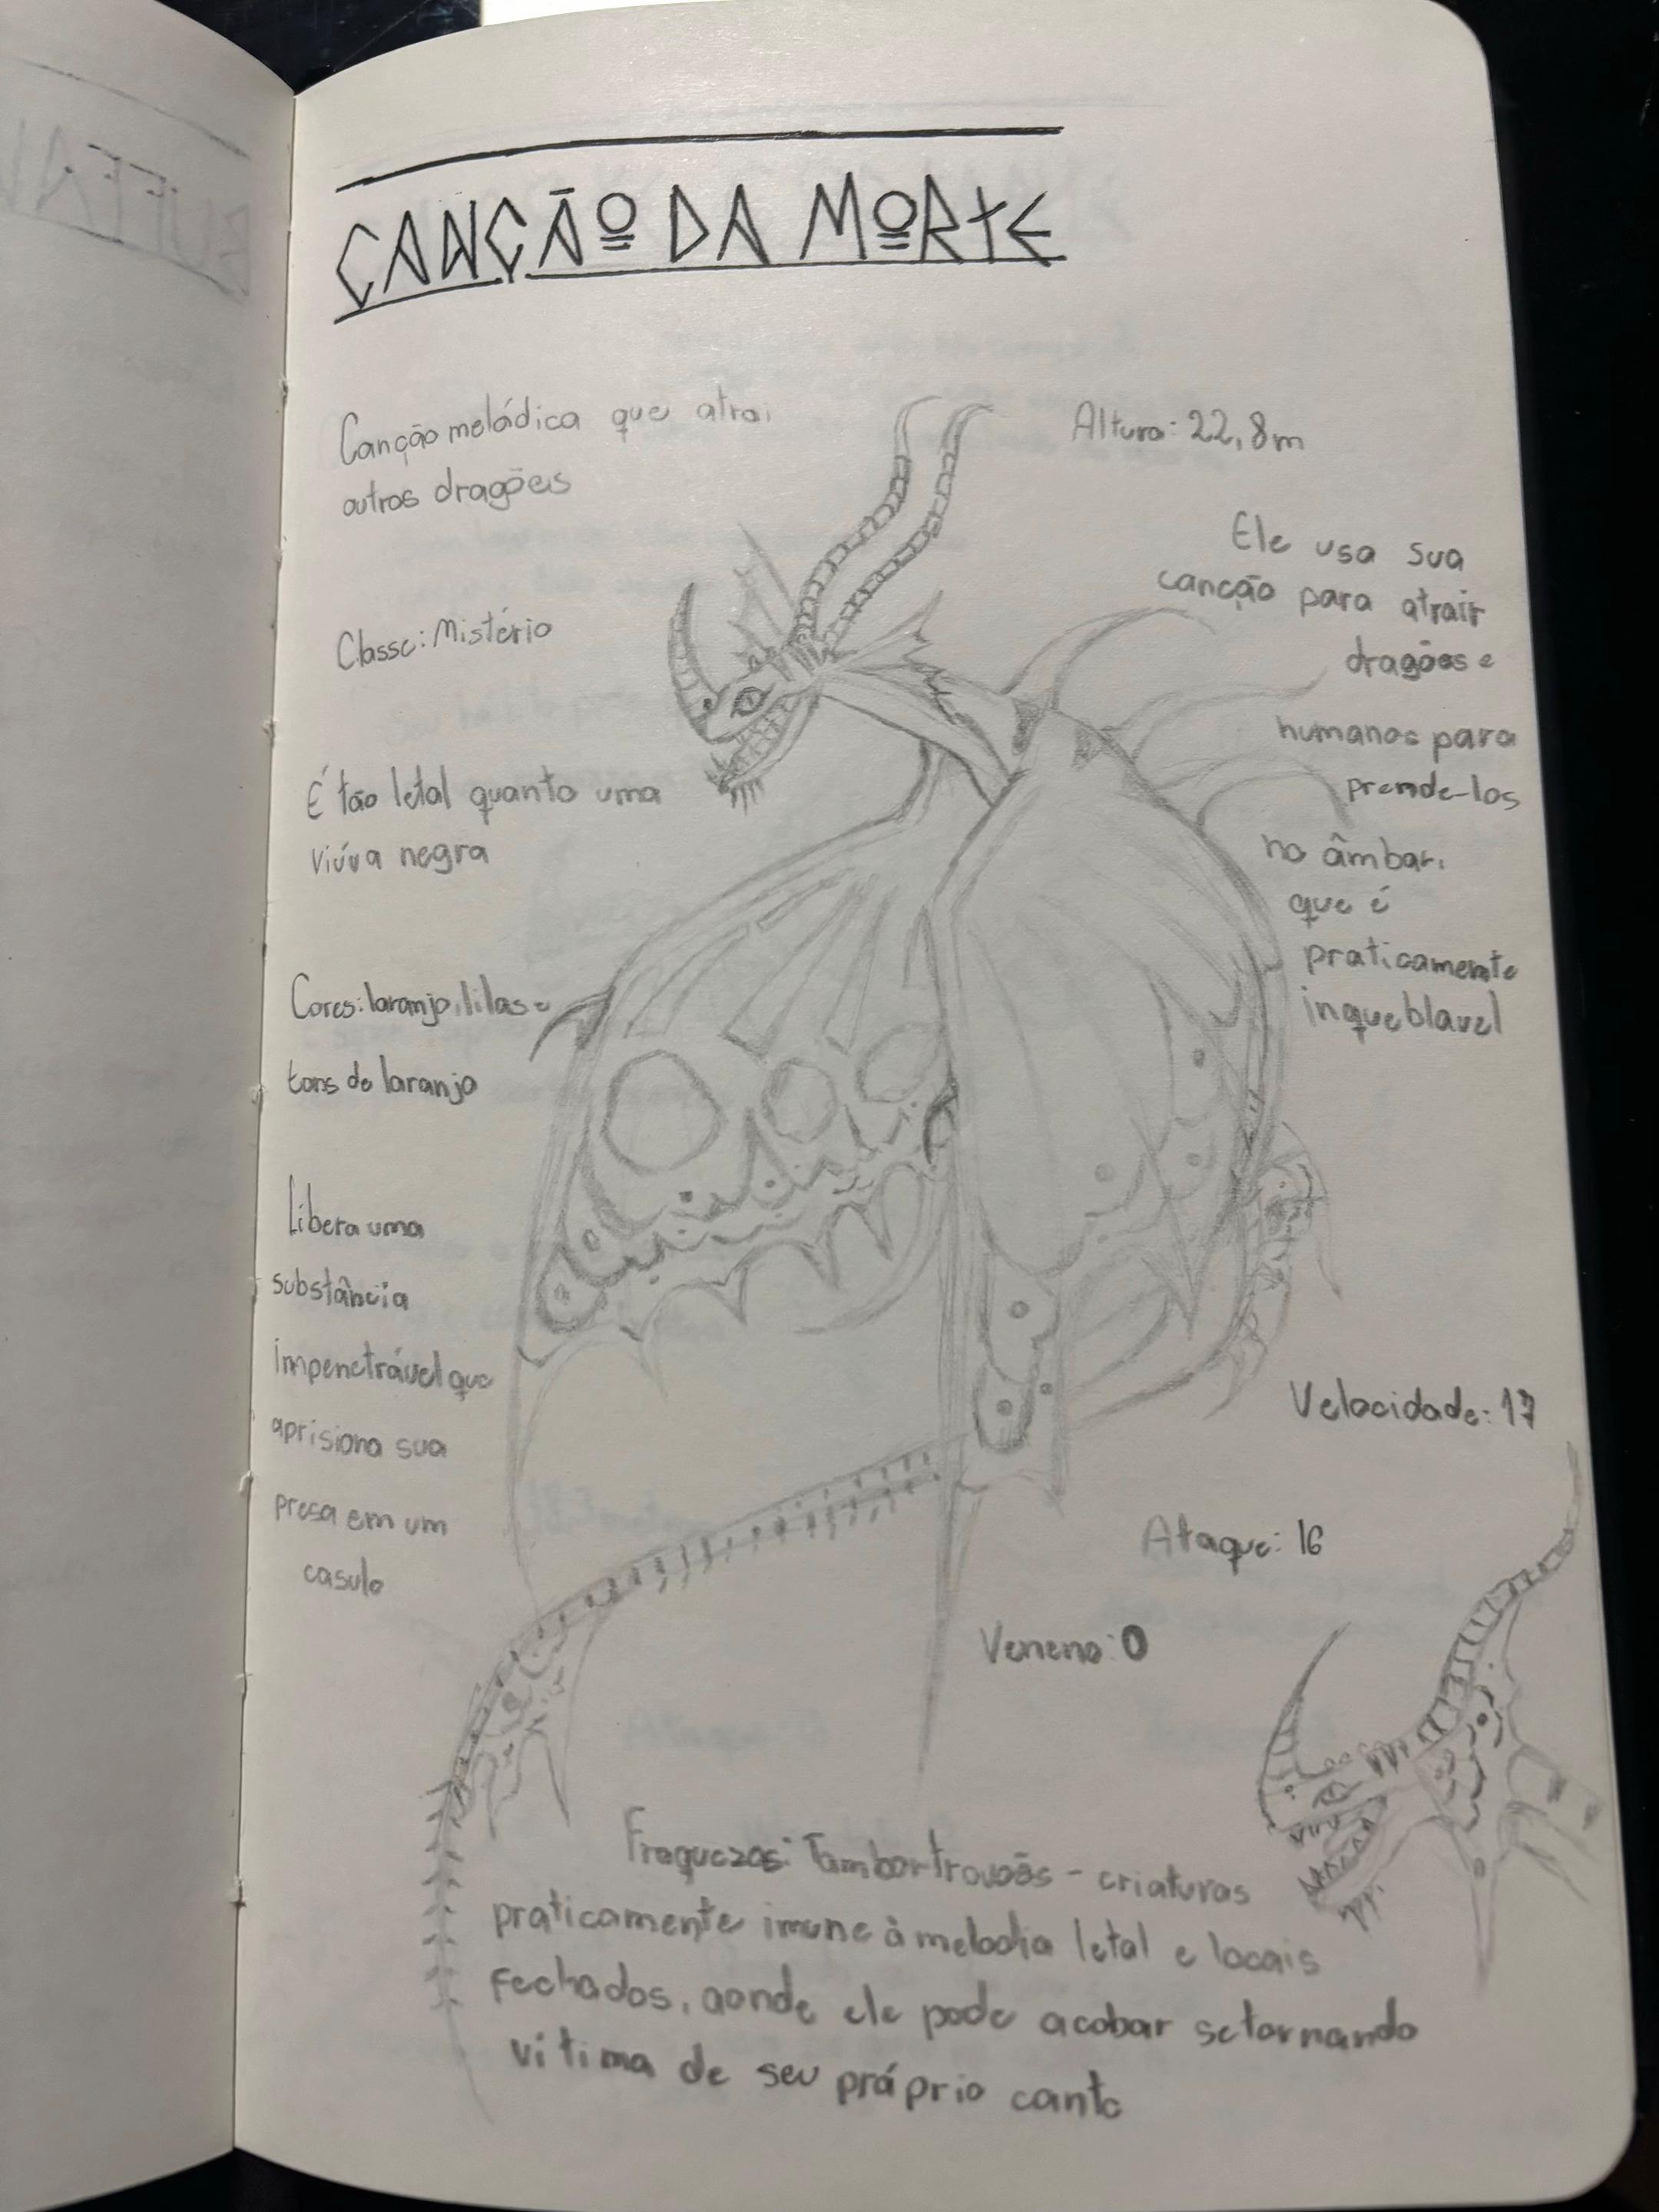 CANÇÃO DA MORTE
Canção melódica que atrai
outros dragões
Altura: 22,8m
Ele usa sua
canção para atrair
dragões e
humanos para
prende-los
no âmbar,
que é
praticamente
inqueblavel
Classe: Mistério
É tão letal quanto uma
viúva negra
Cores: laranja, lilas e
tons de laranja
Libera uma
substância
impenetrável que
aprisiona sua
presa em um
casulo
Velocidade: 17
Ataque: 16
Veneno: 0
Fraquezas: Tambortrovões - criaturas
praticamente imune à melodia letal e locais
fechados, aonde ele pode acabar se tornando
vitima de seu próprio canto